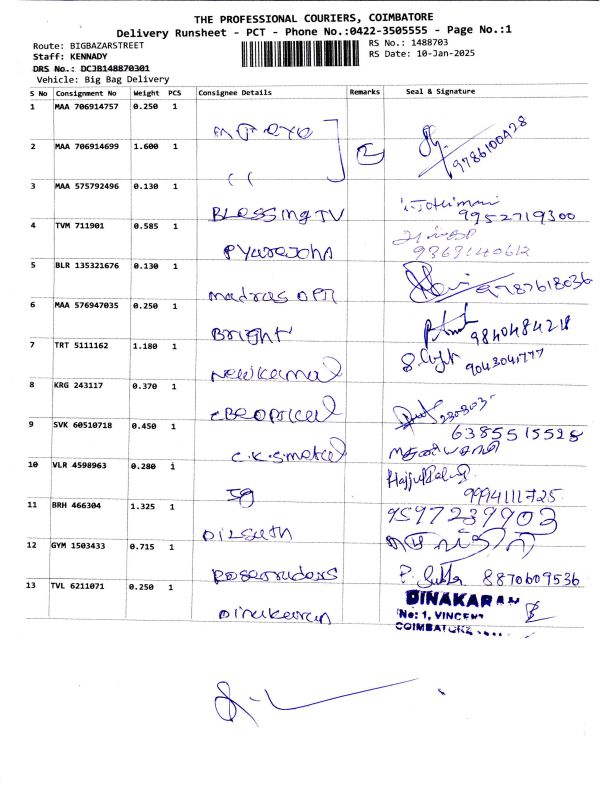 THE PROFESSIONAL COURIERS, COIMBATORE
Delivery Runsheet - PCT - Phone No.:0422-3505555 - Page No.:1
Route: BIGBAZARSTREET
RS No.: 1488703
Staff: KENNADY
RS Date: 10-Jan-2025
DRS No.: DCJB148870301
Vehicle: Big Bag Delivery
S No Consignment No Weight PCS Consignee Details Remarks Seal & Signature
1 MAA 706914757 0.250 1
2 MAA 706914699 1.600 1 9786100428
3 MAA 575792496 0.130 1 Blessing TV 9952719300
4 TVM 711901 0.585 1 Pyarejohn
5 BLR 135321676 0.130 1 madras OPT 9787618036
6 MAA 576947035 0.250 1 Bright 9840484218
7 TRT 5111162 1.180 1 Newkamal 9043041777
8 KRG 243117 0.370 1
9 SVK 60510718 0.450 1 C.K.S metal 6385515528
10 VLR 4598963 0.280 1 9994111725
11 BRH 466304 1.325 1 9597239903
12 GYM 1503433 0.715 1 8870609536
13 TVL 6211071 0.250 1 Dinakaran DINAKARAN
No: 1, VINCENT
COIMBATORE